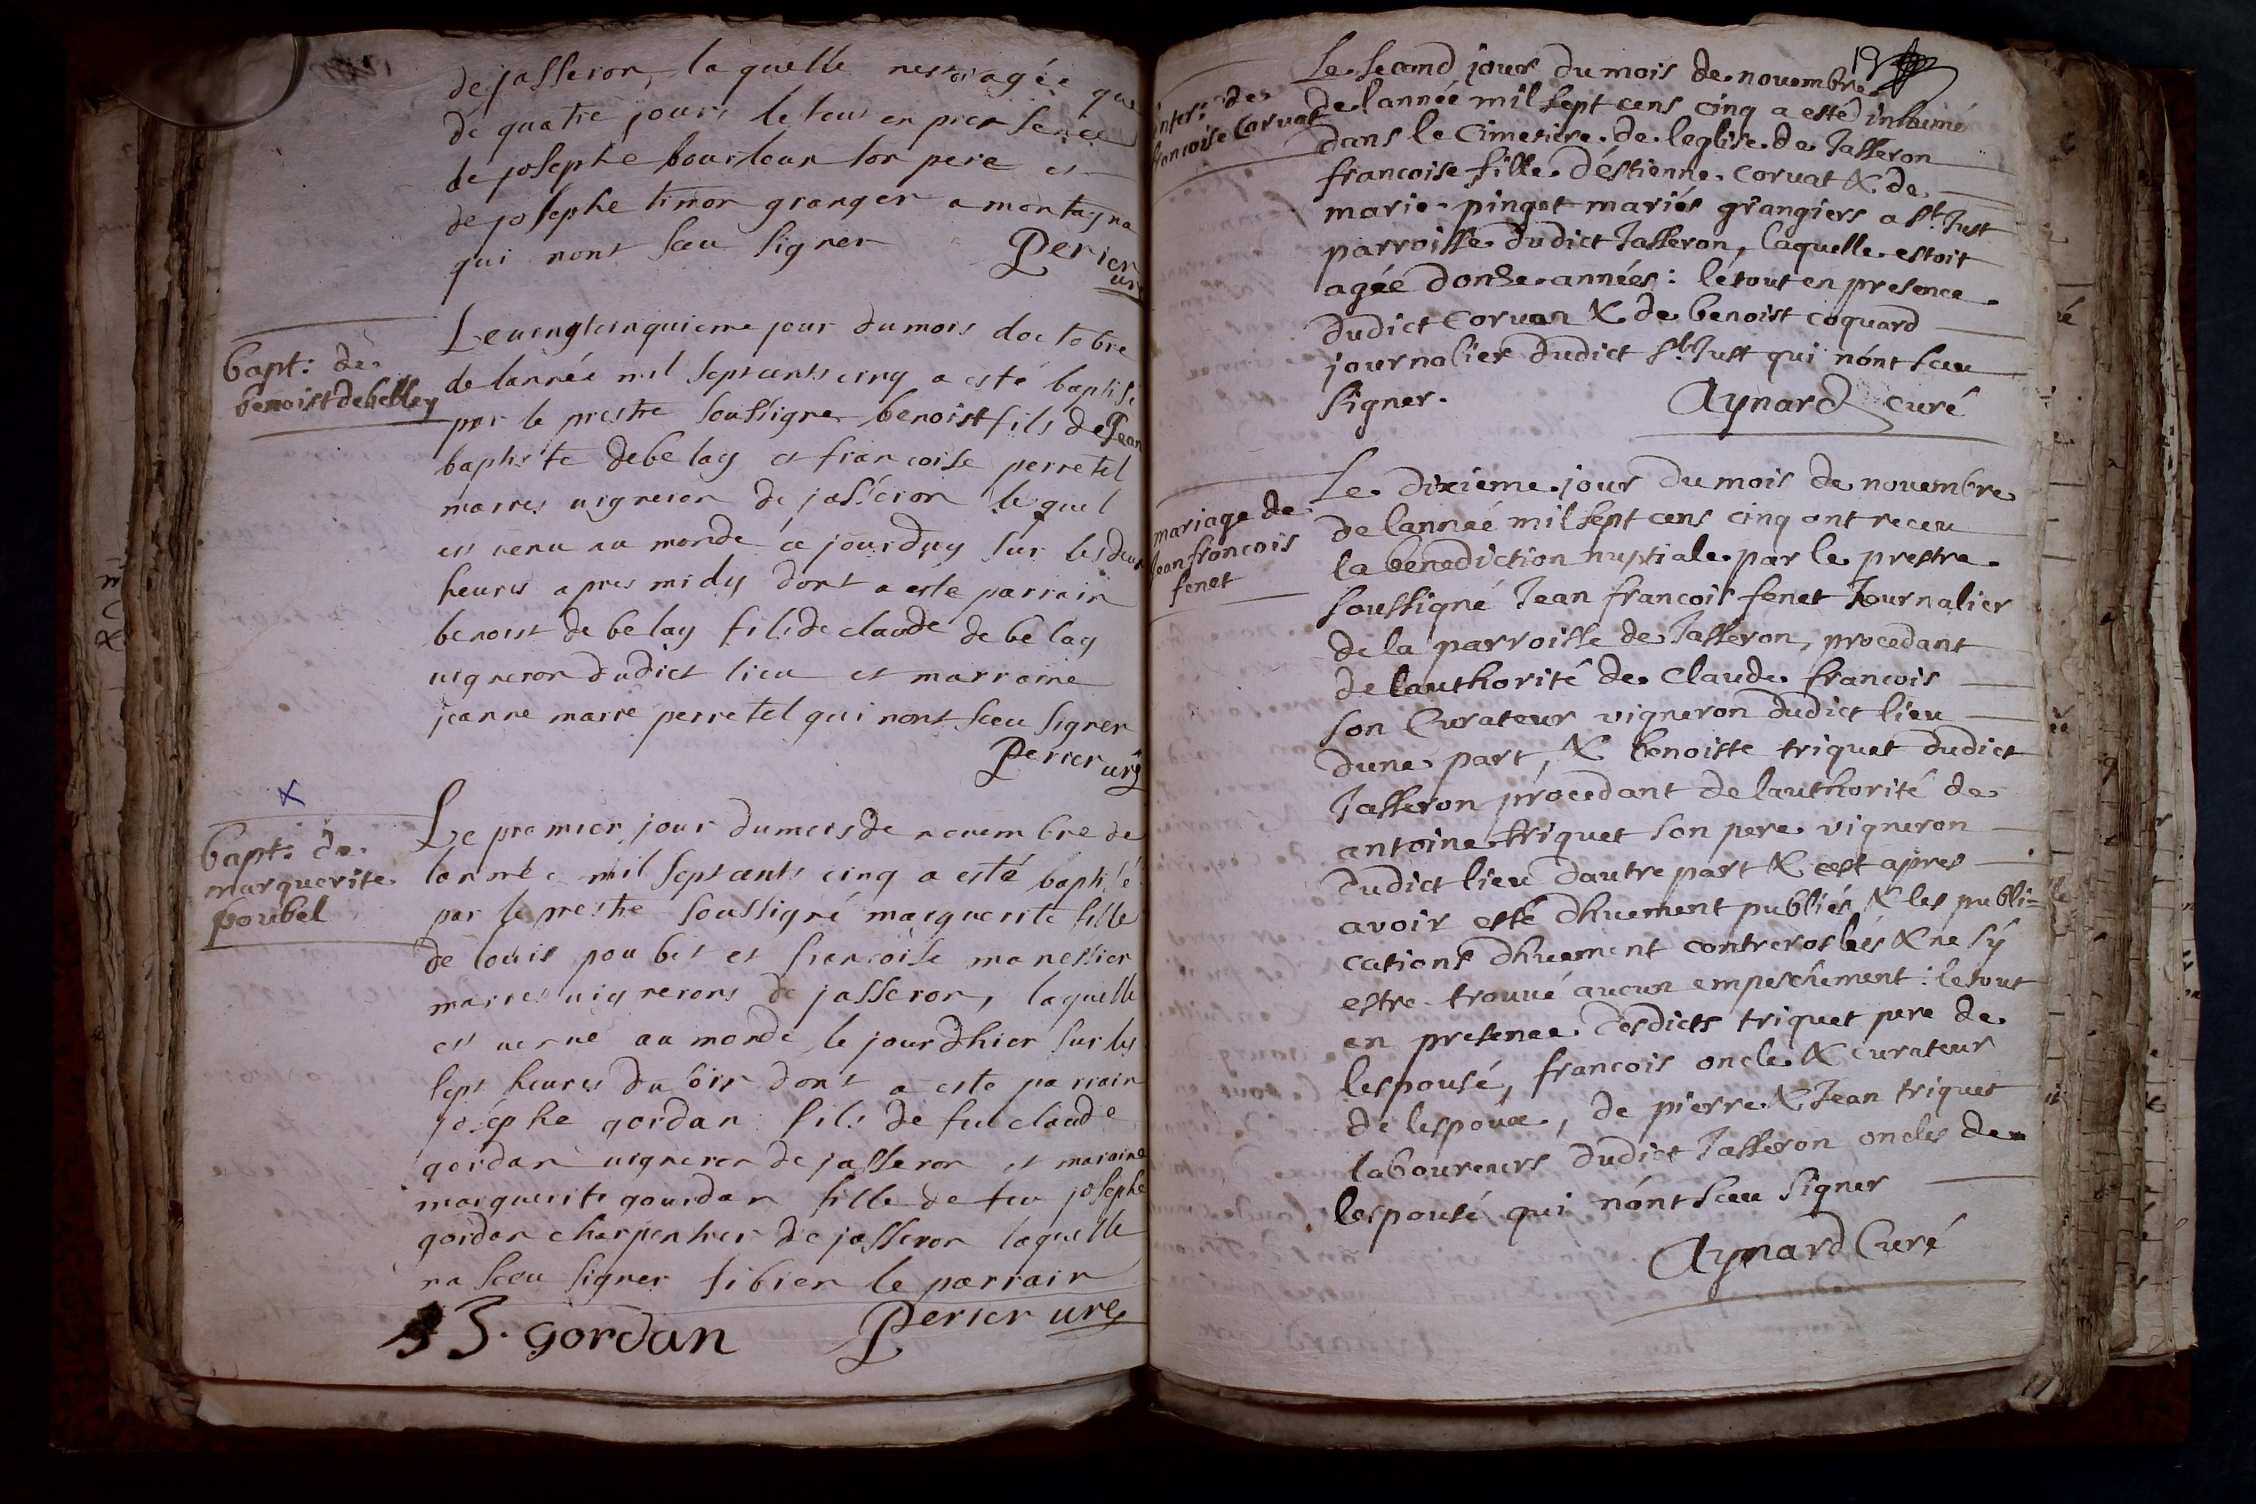 de jasseron, laquelle nestoi agée que
de quatre jours le tout en presence
de josephe bourleur son pere et
de josephe timon granger a montagna
qui nont sceu signer
Perier
bapt: de
benoist debelley
Le vingtcinquieme jour du mois doctobre
de lannée mil septcents cinq a esté baptisé
par le prestre soussigne benoist fils de Jean
baptiste debelay et francoise perretel
maries vigneron de jasseron lequel
est venu au monde ce jourdhuy sur les deux
heures apres midy dont a este parrain
benoist de belay fils de claude de belay
vigneron dudict lieu et marraine
jeanne marie perretel qui nont sceu signer
Perier
bapt: de
marguerite
poubel
Le premier jour du mois de novembre de
lannée mil septcents cinq a esté baptisé
par le prestre soussigné marguerite fille
de louis poubet et francoise manessier
maries vignerons de jasseron, laquelle
est venue au monde le jourdhier sur les
sept heures du soir dont a este parrain
josephe gordan fils de feu claude
gordan vigneron de jasseron et maraine
marguerite gourdan fille de feu josephe
gordan charpentier de jasseron laquelle
na sceu signer sibien le parrain
J. gordan
Perier
19
inter: de
francoise Corvat
Le second jour du mois de novembre
de lannée mil sept cens cinq a esté inhumé
dans le cimetiere de leglise de Jasseron
francoise fille déstienne corvat & de
marie pinget mariés grangiers a st. Just
parroisse dudict Jasseron, laquelle estoit
agée donze années: le tout en presence
dudict corvan & de benoist coquard
journalier dudict st. Just qui nónt sceu
signer.
Aynard curé
mariage de
Jean francois
fenet
Le dixiéme jour du mois de novembre
de lannéé mil sept cens cinq ont receu
la benediction nuptiale par le prestre
soussigné Jean francois fenet Journalier
de la parroisse de Jasseron, procedant
de lauthorité de claude francois
son Curateur vigneron dudict lieu
dune part, & benoiste triquet dudict
Jasseron procedant de lauthorité de
antoine triquet son pere vigneron
dudict lieu dautre part & cest apres
avoir esté dhuement publiés & les publi=
cations dhuement controrolées & ne sÿ
estre trouvé aucun empeschement: le tout
en presence desdicts triquet pere de
lespousé, francois oncle & curateur
de lespoux, de pierre & Jean triquet
laboureurs dudict Jasseron oncles de
lespousé qui nónt sceu signer
Aynard Curé